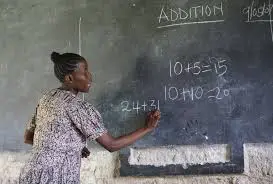 ADDITION
10+5=15
10+10=20
24+31